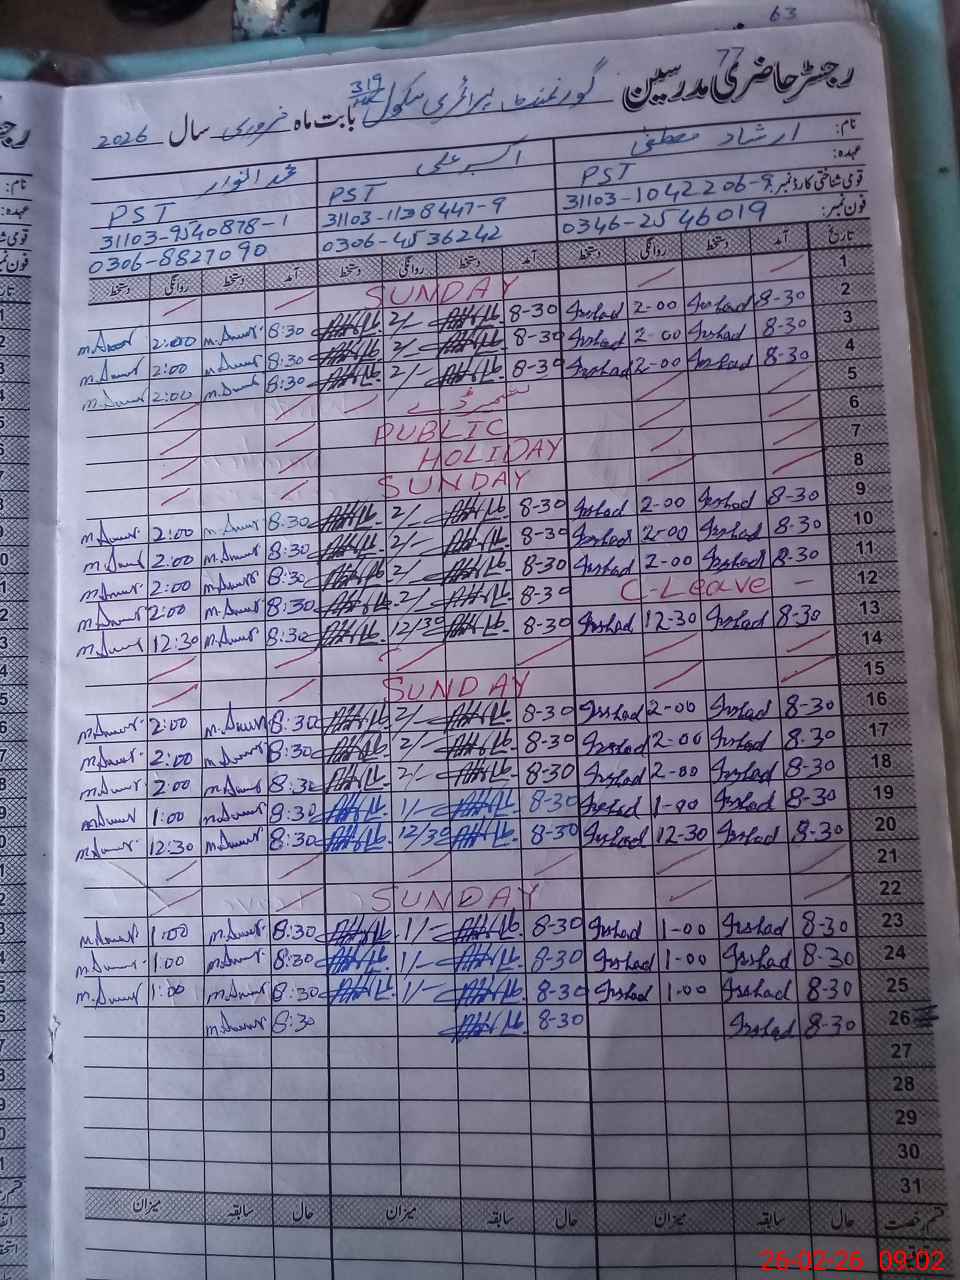 63
77
رجسٹر حاضری مدرسین گورنمنٹ پرائمری سکول 319 بابت ماہ فروری سال 2026
نام: ارشاد مصطفیٰ اکبر علی محمد انوار
عہدہ: PST PST PST
قومی شناختی کارڈ نمبر: 31103-1042206-9 31103-1138447-9 31103-9540878-1
فون نمبر: 0346-2546019 0306-4536242 0306-8827090
تاریخ آمد دستخط روانگی دستخط آمد دستخط روانگی دستخط آمد دستخط روانگی دستخط
1 SUNDAY
2 8-30 Irshad 2-00 Irshad 8-30 2/- 8:30 m.Anwar 2:00 m.Anwar
3 8-30 Irshad 2-00 Irshad 8-30 2/- 8:30 m.Anwar 2:00 m.Anwar
4 8-30 Irshad 2-00 Irshad 8-30 2/- 8:30 m.Anwar 2:00 m.Anwar
5
6 PUBLIC
7 HOLIDAY
8 SUNDAY
9 8-30 Irshad 2-00 Irshad 8-30 2/- 8:30 m.Anwar 2:00 m.Anwar
10 8-30 Irshad 2-00 Irshad 8-30 2/- 8:30 m.Anwar 2:00 m.Anwar
11 8-30 Irshad 2-00 Irshad 8-30 2/- 8:30 m.Anwar 2:00 m.Anwar
12 — C-Leave 8-30 2/- 8:30 m.Anwar 2:00 m.Anwar
13 8-30 Irshad 12-30 Irshad 8-30 12/30 8:30 m.Anwar 12:30 m.Anwar
14
15 SUNDAY
16 8-30 Irshad 2-00 Irshad 8-30 2/- 8:30 m.Anwar 2:00 m.Anwar
17 8-30 Irshad 2-00 Irshad 8-30 2/- 8:30 m.Anwar 2:00 m.Anwar
18 8-30 Irshad 2-00 Irshad 8-30 2/- 8:30 m.Anwar 2:00 m.Anwar
19 8-30 Irshad 1-00 Irshad 8-30 1/- 8:30 m.Anwar 1:00 m.Anwar
20 8-30 Irshad 12-30 Irshad 8-30 12/30 8:30 m.Anwar 12:30 m.Anwar
21
22 SUNDAY
23 8-30 Irshad 1-00 Irshad 8-30 1/- 8:30 m.Anwar 1:00 m.Anwar
24 8-30 Irshad 1-00 Irshad 8-30 1/- 8:30 m.Anwar 1:00 m.Anwar
25 8-30 Irshad 1-00 Irshad 8-30 1/- 8:30 m.Anwar 1:00 m.Anwar
26 8-30 Irshad 8-30 8:30 m.Anwar
27
28
29
30
31
حال سابقہ میزان حال سابقہ میزان حال سابقہ میزان
26-02-26 09:02